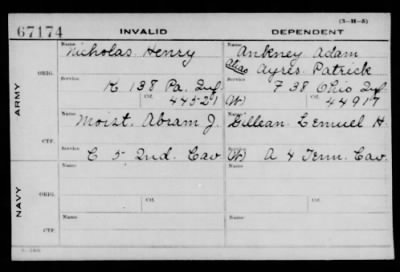 (3-H-5)
67174 INVALID DEPENDENT
Name Name
Nicholas Henry Ankney Adam
Alias Ayres Patrick
ORIG. Service Service
K 138 Pa. Inf. F 38 Ohio Inf
Ctf. Ctf.
44521 W) 44917
ARMY
Name Name
Moist. Abram J. Gillean. Lemuel H.
Service Service
C 5 Ind. Cav W) A 4 Tenn. Cav.
Name Ctf. Name Ctf.
NAVY
ORIG.
Name Name